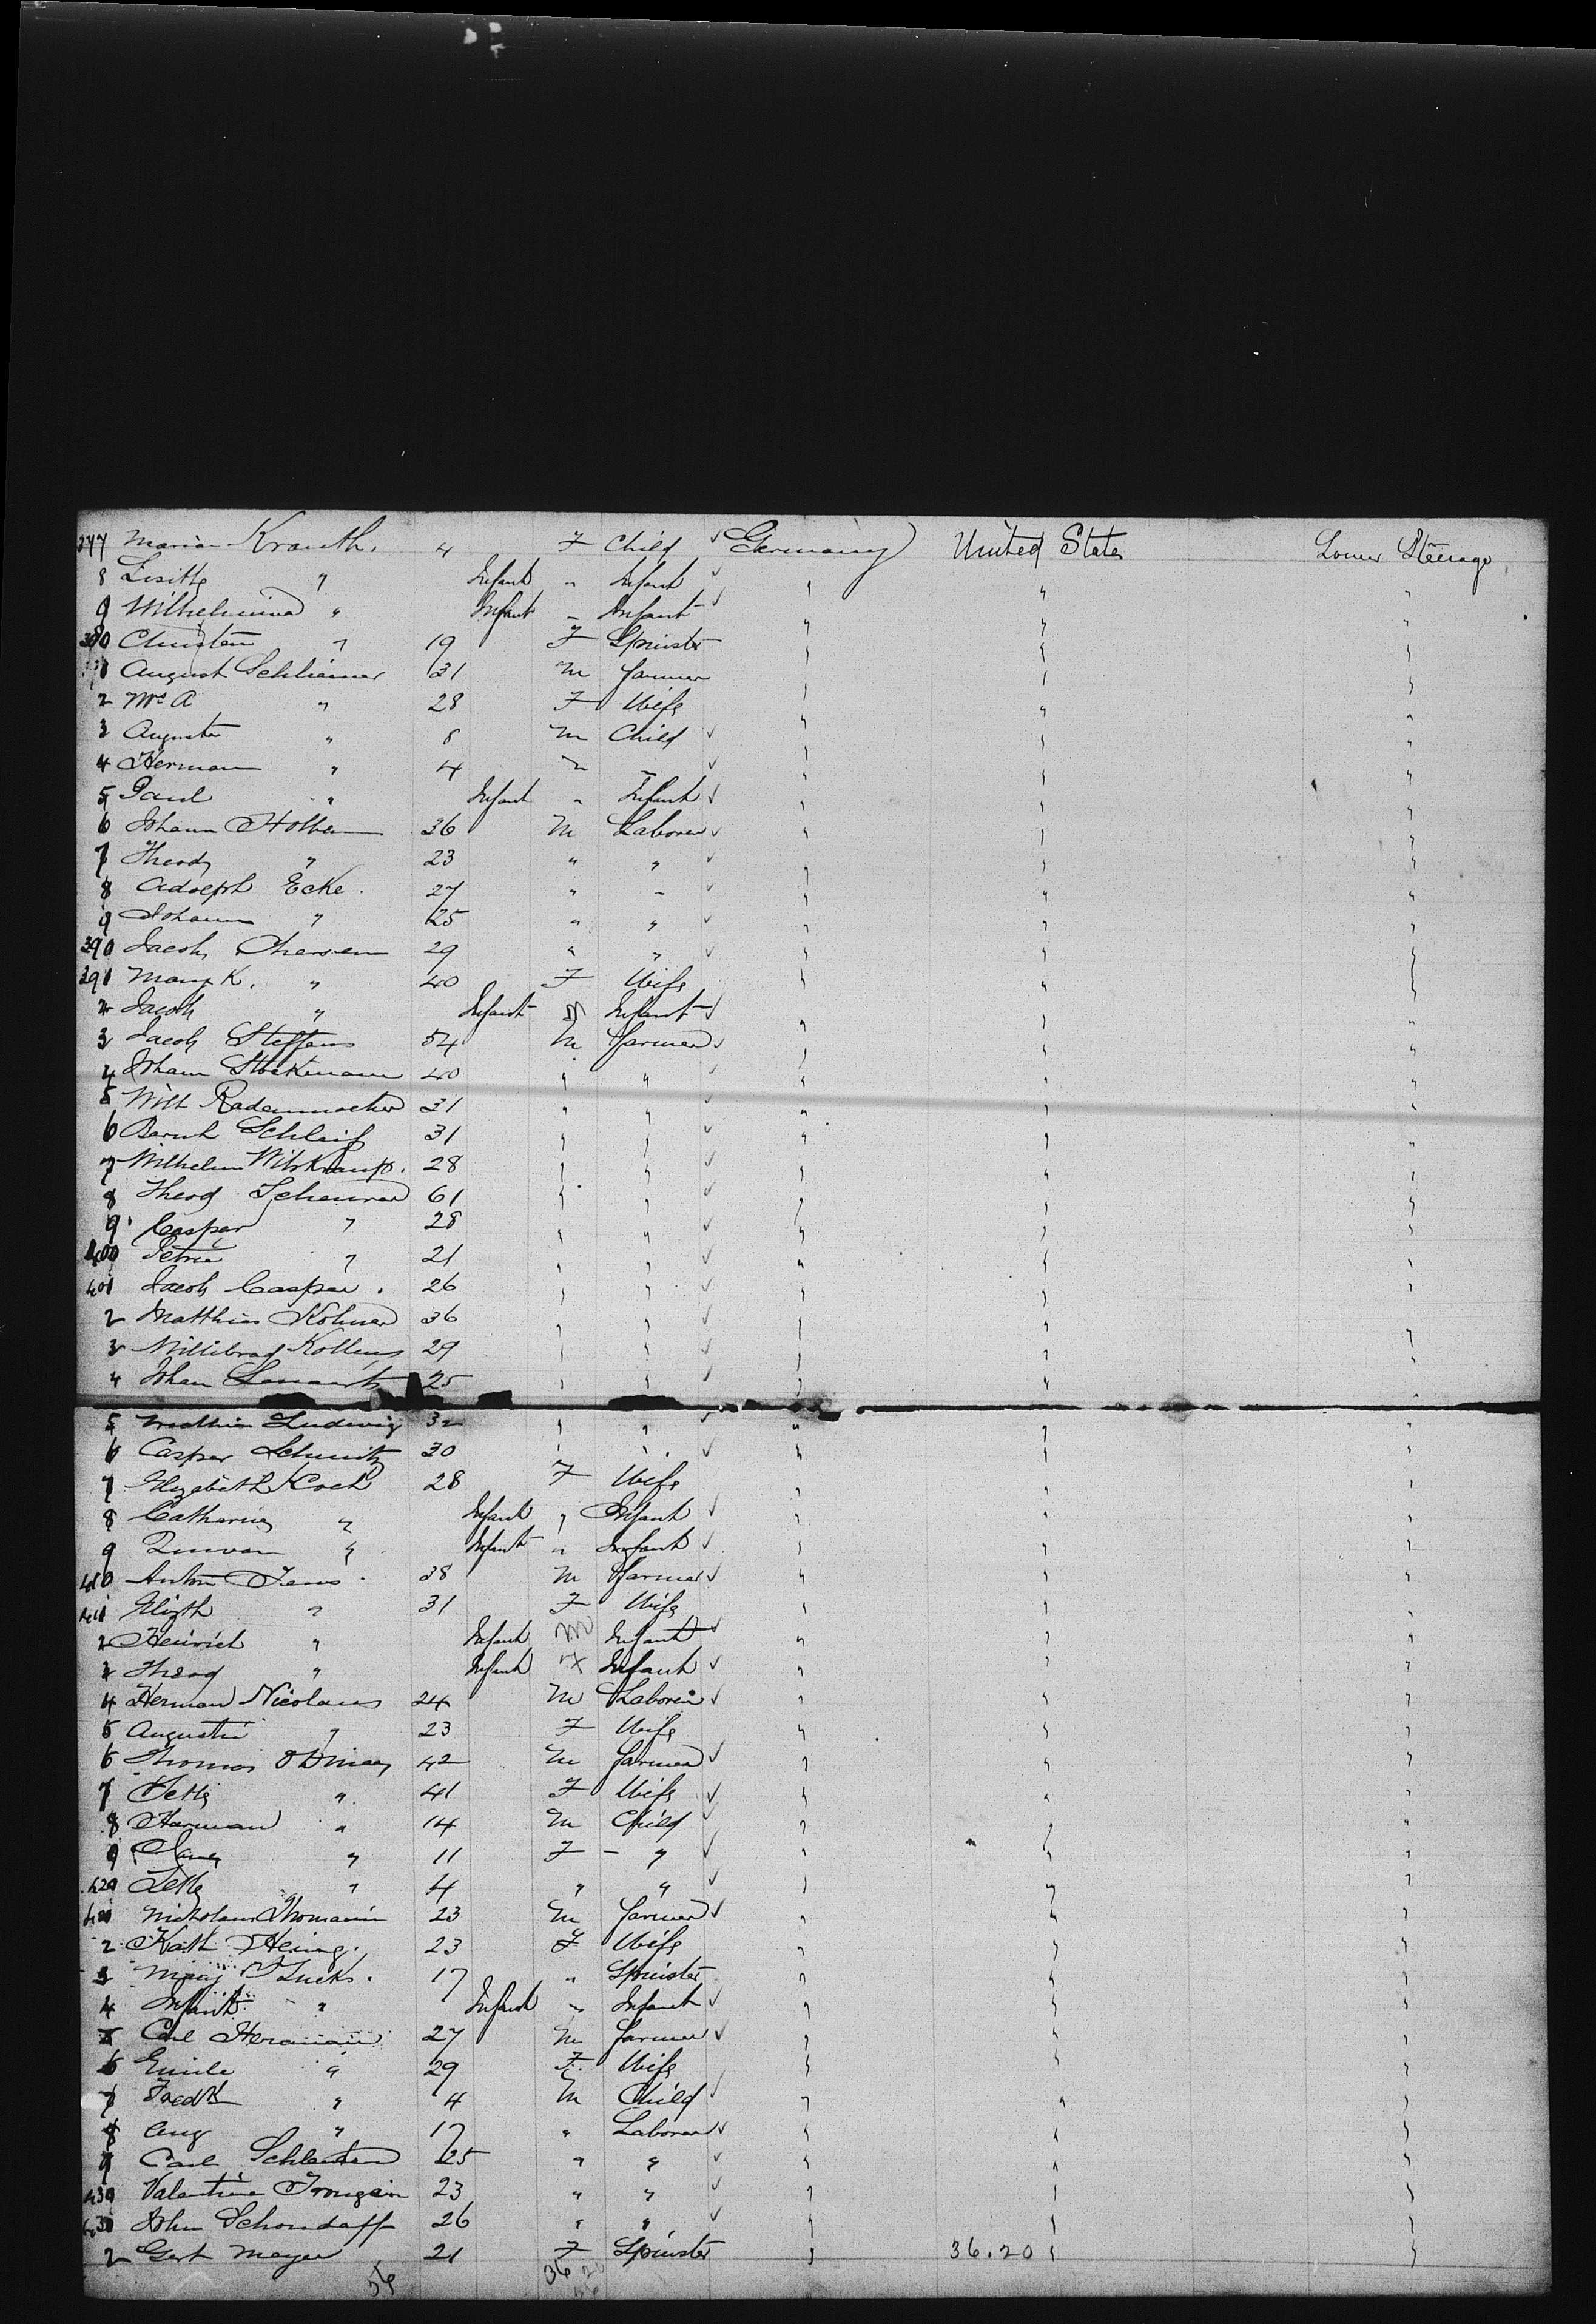 377 Marian Krauth. 4 F Child ✓ Germany United States Lower Steerage
8 Lisitte " Infant " Infant ✓ " " "
9 Wilhelmina " Infant " Infant ✓ " " "
380 Christen " 19 F Spinster " " "
1 August Schliemer 31 M Farmer " " "
2 Mrs A " 28 F Wife " " "
3 August " 8 M Child ✓ " " "
4 Herman " 4 " " ✓ " " "
5 Paul " Infant " Infant ✓ " " "
6 Johann 36 M Laborer ✓ " " "
7 Theod " 23 " " ✓ " " "
8 Adolph Ecke. 27 " " ✓ " " "
9 Johann " 25 " " ✓ " " "
390 Jacob 29 " " ✓ " " "
391 Mary K. " 40 F Wife " " "
2 Jacob " Infant M Infant ✓ " " "
3 Jacob Steffens 54 M Farmer ✓ " " "
4 Johann Stockmann 40 " " ✓ " " "
5 Wilh Rademacher 31 " " ✓ " " "
6 Bernh Schleif 31 " " ✓ " " "
7 Wilhelm 28 " " ✓ " " "
8 Theod Scheurer 61 " " ✓ " " "
9 Caspar " 28 " " ✓ " " "
400 " 21 " " ✓ " " "
401 Jacob Caspar. 26 " " ✓ " " "
2 Matthias Kohner 36 " " ✓ " " "
3 Willibrod Kollens 29 " " ✓ " " "
4 Johan Lenaarts 25 " " ✓ " " "
5 Mathias Ludwig 32 " " ✓ " " "
6 Caspar Schmitz 30 " " ✓ " " "
7 Elizabeth Koch 28 F Wife " " "
8 Catharina " Infant " Infant ✓ " " "
9 " Infant " Infant ✓ " " "
410 Anton 38 M Farmer ✓ " " "
411 Elizth " 31 F Wife " " "
2 Heinrich " Infant M Infant ✓ " " "
3 Theod " Infant F Infant ✓ " " "
4 Herman Nicolaus 24 M Laborer ✓ " " "
5 Augustin " 23 F Wife " " "
6 Thomas 42 M Farmer ✓ " " "
7 " 41 F Wife ✓ " " "
8 Harman " 14 M Child ✓ " " "
9 " 11 F " ✓ " " "
420 " 4 " " ✓ " " "
Nicholaus Thomann 23 M Farmer ✓ " " "
2 Kath Hering. 23 F Wife " " "
3 Mary 17 " Spinster " " "
4 Infant " Infant " Infant ✓ " " "
5 Carl Herman 27 M Farmer ✓ " " "
6 Emile " 29 F. Wife " " "
7 Fredk " 4 M Child ✓ " " "
8 Aug " 17 " Laborer ✓ " " "
9 Carl 25 " " ✓ " " "
430 Valentine 23 " " ✓ " " "
John Schondaff 26 " " ✓ " " "
2 Gert Meyer 21 F Spinster " 36.20 " "
56 36 20